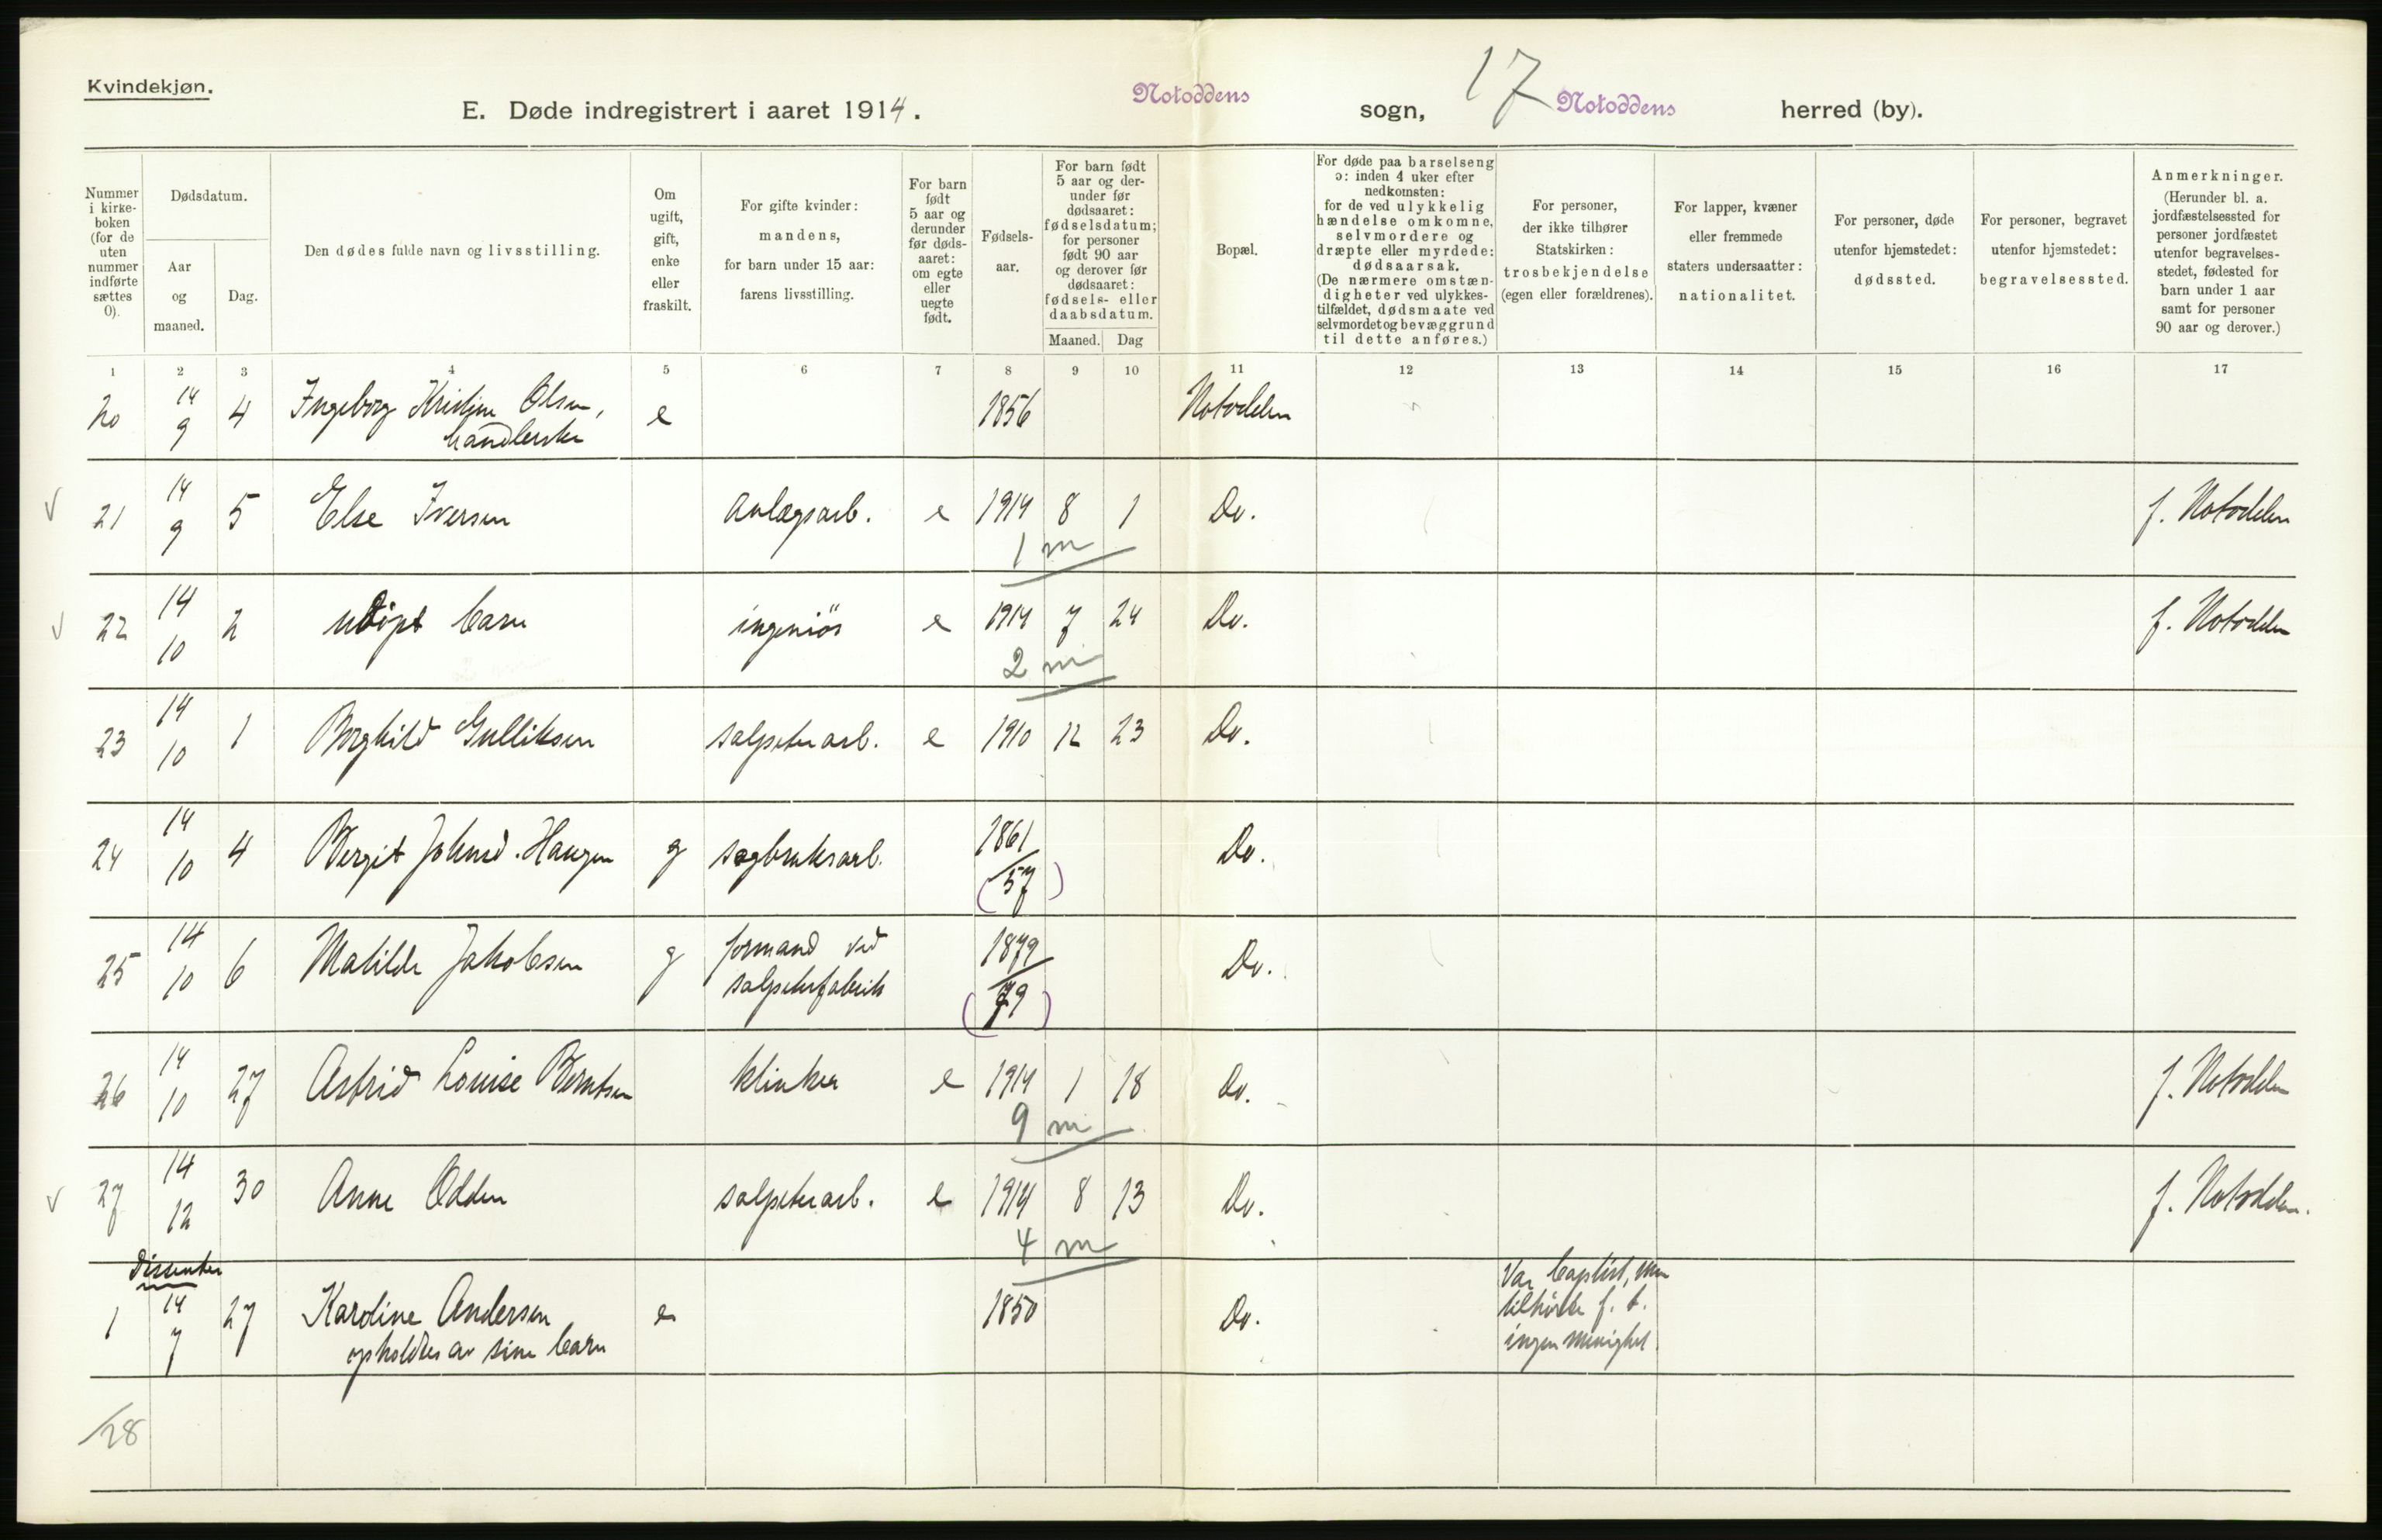 Kvindekjøn.
E. Døde indregistrert i aaret 1914. Notoddens sogn, 17 Notoddens herred (by).
Nummer i kirke-boken (for de uten nummer indførte sættes 0).
Dødsdatum.
Aar og maaned.
Dag.
Den dødes fulde navn og livsstilling.
Om ugift, gift, enke eller fraskilt.
For gifte kvinder: mandens, for barn under 15 aar: farens livsstilling.
For barn født 5 aar og derunder før døds-aaret: om egte eller uegte født.
Fødsels-aar.
For barn født 5 aar og der-under før dødsaaret: fødselsdatum; for personer født 90 aar og derover før dødsaaret: fødsels- eller daabsdatum.
Maaned. Dag
Bopæl.
For døde paa barselseng ɔ: inden 4 uker efter nedkomsten: for de ved ulykkelig hændelse omkomne, selvmordere og dræpte eller myrdede: dødsaarsak. (De nærmere omstæn-digheter ved ulykkes-tilfældet, dødsmaate ved selvmordet og bevæggrund til dette anføres.)
For personer, der ikke tilhører Statskirken: trosbekjendelse (egen eller forældrenes).
For lapper, kvæner eller fremmede staters undersaatter: nationalitet.
For personer, døde utenfor hjemstedet: dødssted.
For personer, begravet utenfor hjemstedet: begravelsessted.
Anmerkninger. (Herunder bl. a. jordfæstelsessted for personer jordfæstet utenfor begravelses-stedet, fødested for barn under 1 aar samt for personer 90 aar og derover.)
1 2 3 4 5 6 7 8 9 10 11 12 13 14 15 16 17
20 14 9 4 Ingeborg Kristine Olsen, handlerske e 1856 Notodden
21 14 9 5 Else Iversen Anlægsarb. e 1914 8 1 Do. f. Notodden
1 m
22 14 10 2 udöpt barn ingeniör e 1914 7 24 Do. f. Notodden
2 m
23 14 10 1 Borghild Gulliksen salpeterarb. e 1910 12 23 Do.
24 14 10 4 Bergit Johnsd. Haugen g sagbruksarb. 1861 Do.
(57)
25 14 10 6 Matilde Jakobsen g formand ved salpeterfabrik 1879 Do.
(79)
26 14 10 27 Astrid Louise Berntsen klinker e 1914 1 18 Do. f. Notodden
9 m
27 14 12 30 Anne Odden salpeterarb. e 1914 8 13 Do. f. Notodden.
4 m
Dissenter
1 14 7 27 Karoline Andersen e 1850 Do. Var baptist, men
opholdtes av sine barn tilhörte f. t.
ingen menighet.
28